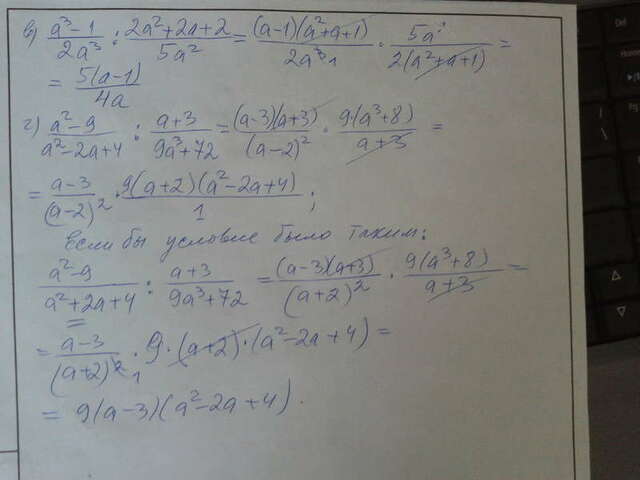 в) (a³-1)/(2a³) : (2a²+2a+2)/(5a²) = ((a-1)(a²+a+1))/(2a³ 1) · (5a²)/(2(a²+a+1)) =
= (5(a-1))/(4a)
г) (a²-9)/(a²-2a+4) : (a+3)/(9a³+72) = ((a-3)(a+3))/((a-2)²) · (9·(a³+8))/(a+3) =
= (a-3)/((a-2)²) · (9(a+2)(a²-2a+4))/1 ;
Если бы условие было таким:
(a²-9)/(a²+2a+4) : (a+3)/(9a³+72) = ((a-3)(a+3))/((a+2)²) · (9(a³+8))/(a+3) =
= (a-3)/((a+2)² 1) · 9·(a+2)·(a²-2a+4) =
= 9(a-3)(a²-2a+4).
Del